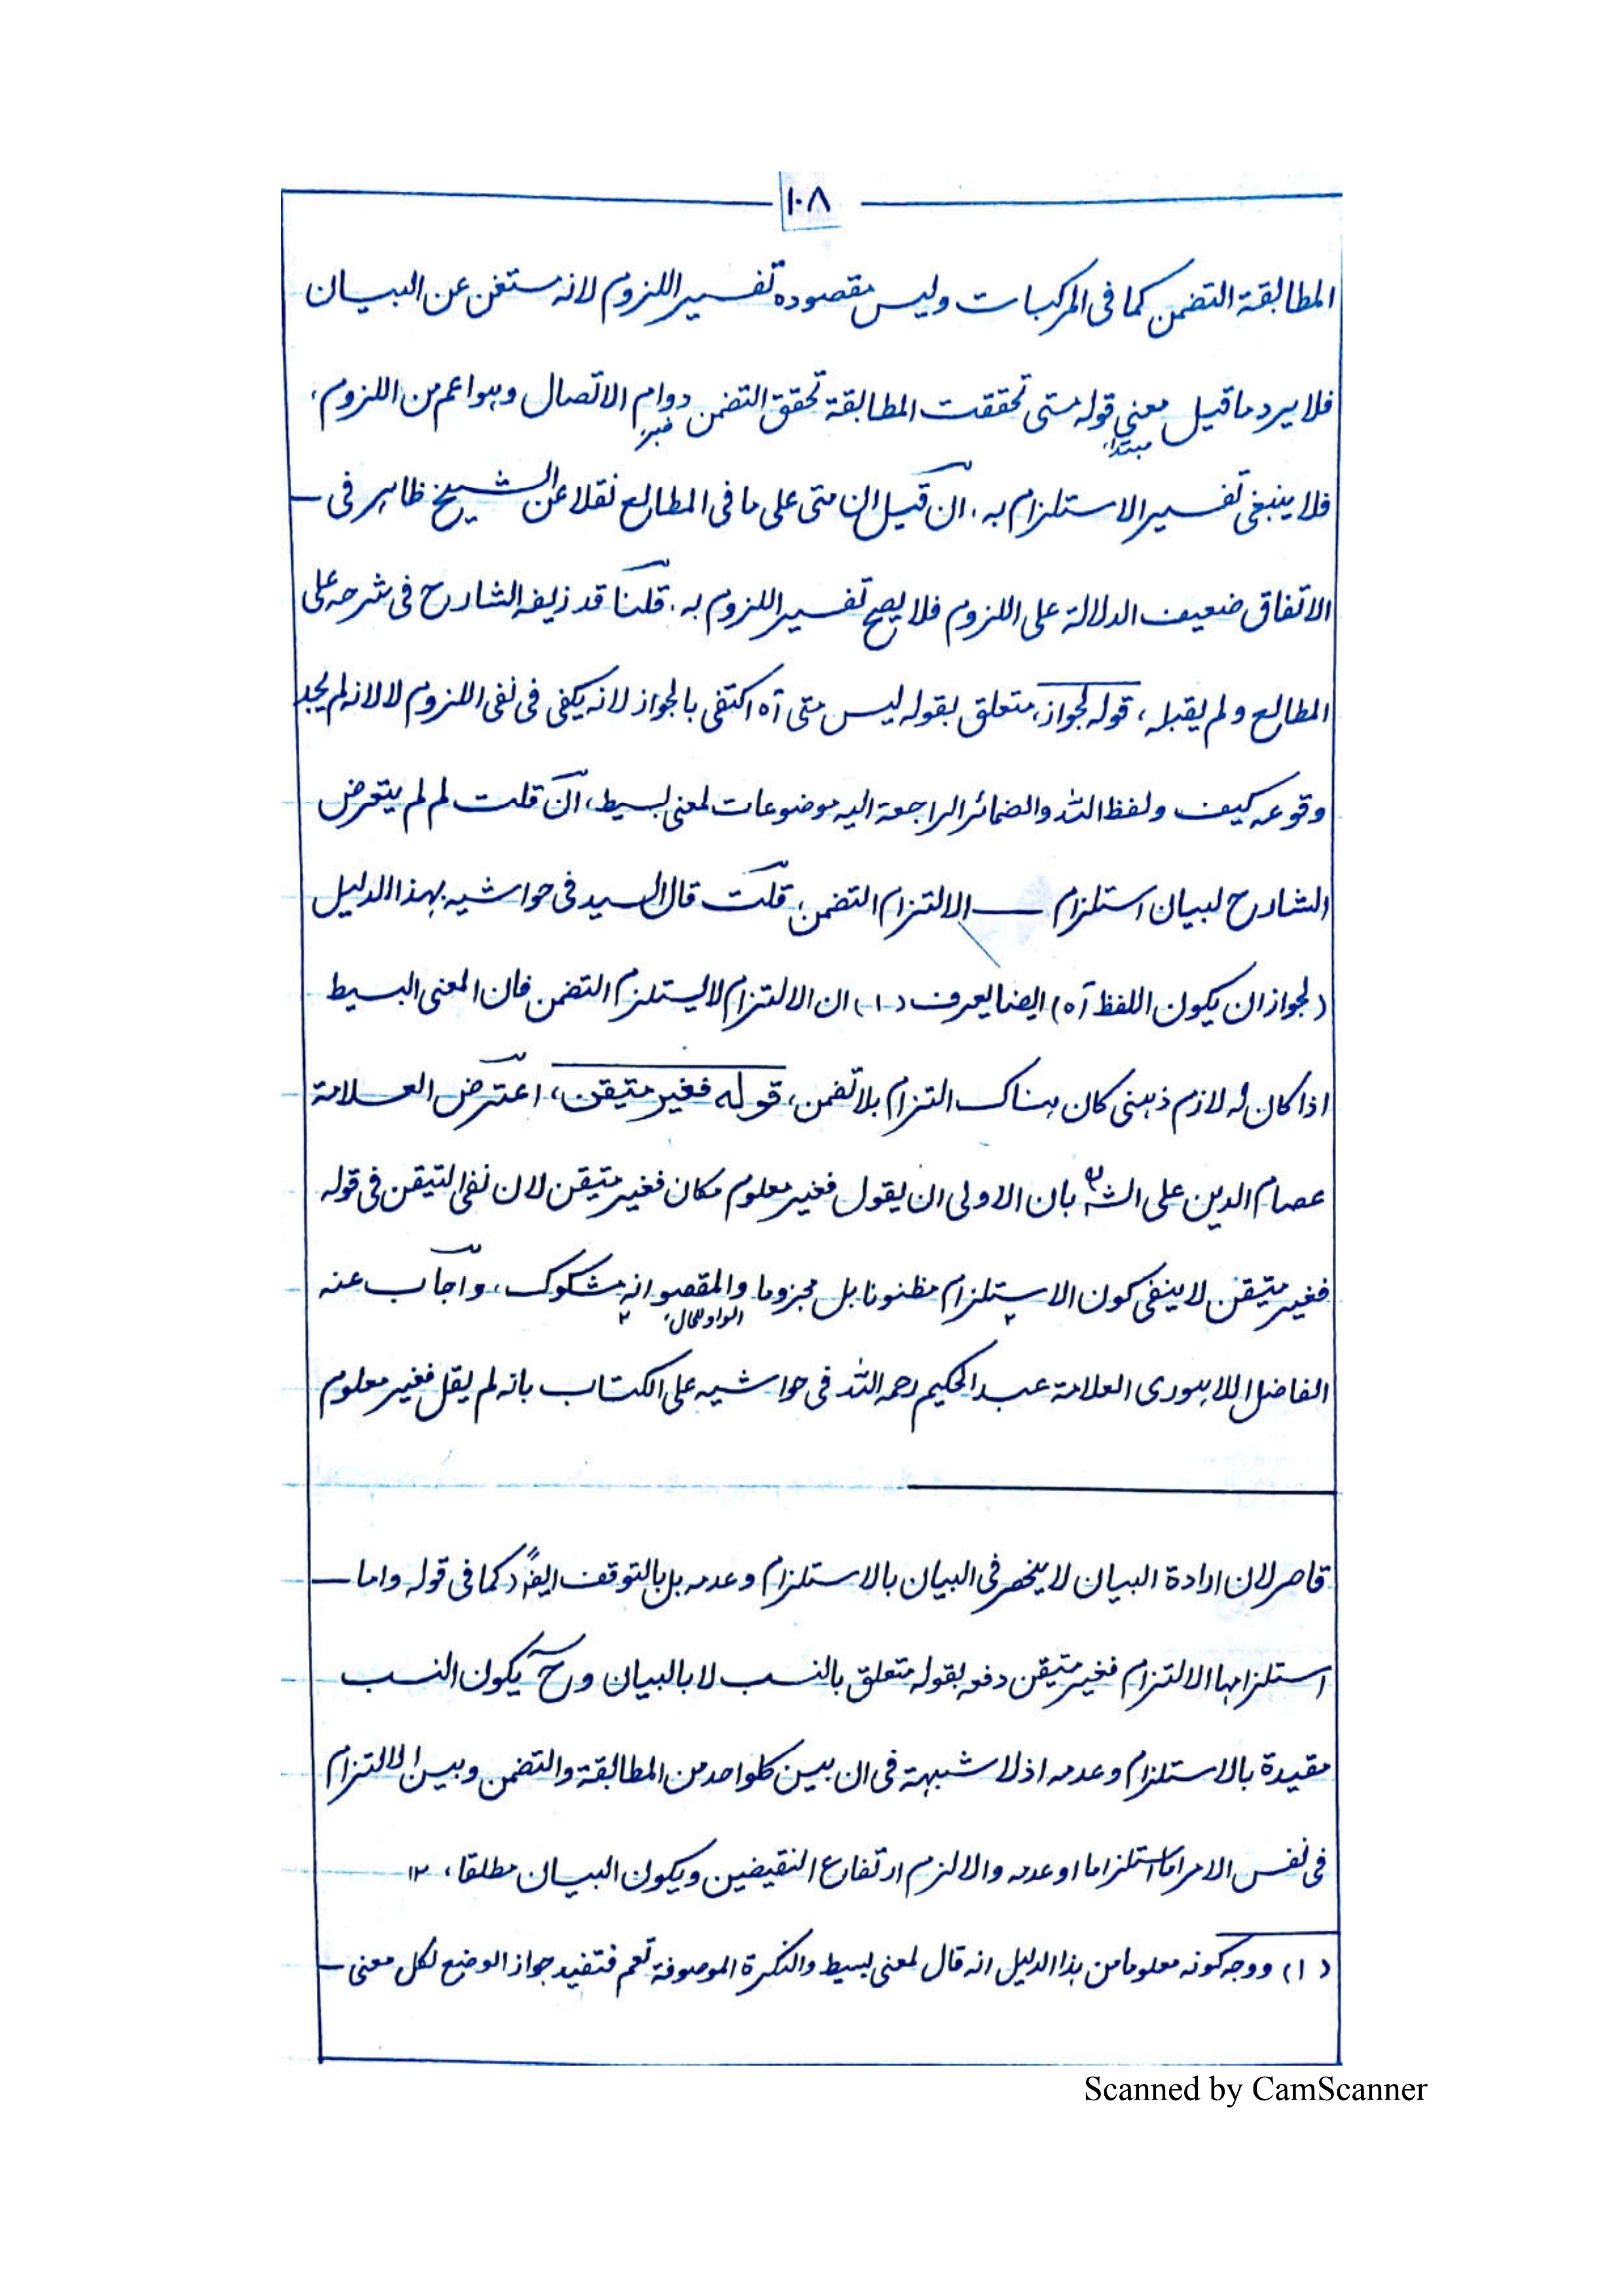 ١٠٨
المطابقة التضمن كما فى المركبات وليس مقصوده تفسير اللزوم لانه مستغن عن البيان
فلا يرد ما قيل معنى قوله متى تحققت المطابقة تحقق التضمن دوام الاتصال وهو اعم من اللزوم،
مبتدا، خبر،
فلا ينبغى تفسير الاستلزام به. ان قيل ان متى على ما فى المطالع نقلا عن الشيخ ظاهر فى —
الاتفاق ضعيف الدلالة على اللزوم فلا يصح تفسير اللزوم به. قلنا قد زيفه الشارح فى شرحه على
المطالع ولم يقبله، قوله لجواز، متعلق بقوله ليس متى آه اكتفى بالجواز لانه يكفى فى نفى اللزوم لا لانه لم يجد
وقوعه كيف ولفظ الله والضمائر الراجعة اليه موضوعات لمعنى بسيط، ان قلت لم لم يتعرض
الشارح لبيان استلزام — الالتزام التضمن، قلت قال السيد فى حواشيه بهذا الدليل
(لجواز ان يكون اللفظ آه) ايضا يعرف (١) ان الالتزام لا يستلزم التضمن فان المعنى البسيط
اذا كان له لازم ذهنى كان هناك التزام بلا تضمن، قوله فغير متيقن، اعترض العلامة
عصام الدين على الشه بان الاولى ان يقول فغير معلوم مكان فغير متيقن لان نفى التيقن فى قوله
فغير متيقن لا ينفى كون الاستلزام مظنونا بل مجزوما والمقصو انه مشكوك، واجاب عنه
الواو للحال،
الفاضل اللاهورى العلامة عبد الحكيم رحمه الله فى حواشيه على الكتاب بانه لم يقل فغير معلوم
قاصر لان ارادة البيان لا ينحصر فى البيان بالاستلزام وعدمه بل بالتوقف ايضاً كما فى قوله واما —
استلزامها الالتزام فغير متيقن دفعه بقوله متعلق بالنسب لا بالبيان وح يكون النسب
مقيدة بالاستلزام وعدمه اذ لا شبهة فى ان بين كلواحد من المطابقة والتضمن وبين الالتزام
فى نفس الامر اما استلزاما او عدمه والا لزم ارتفاع النقيضين ويكون البيان مطلقا، ١٢
(١) ووجه كونه معلوما من هذا الدليل انه قال لمعنى بسيط والنكرة الموصوفة تعم فتفيد جواز الوضع لكل معنى —
Scanned by CamScanner